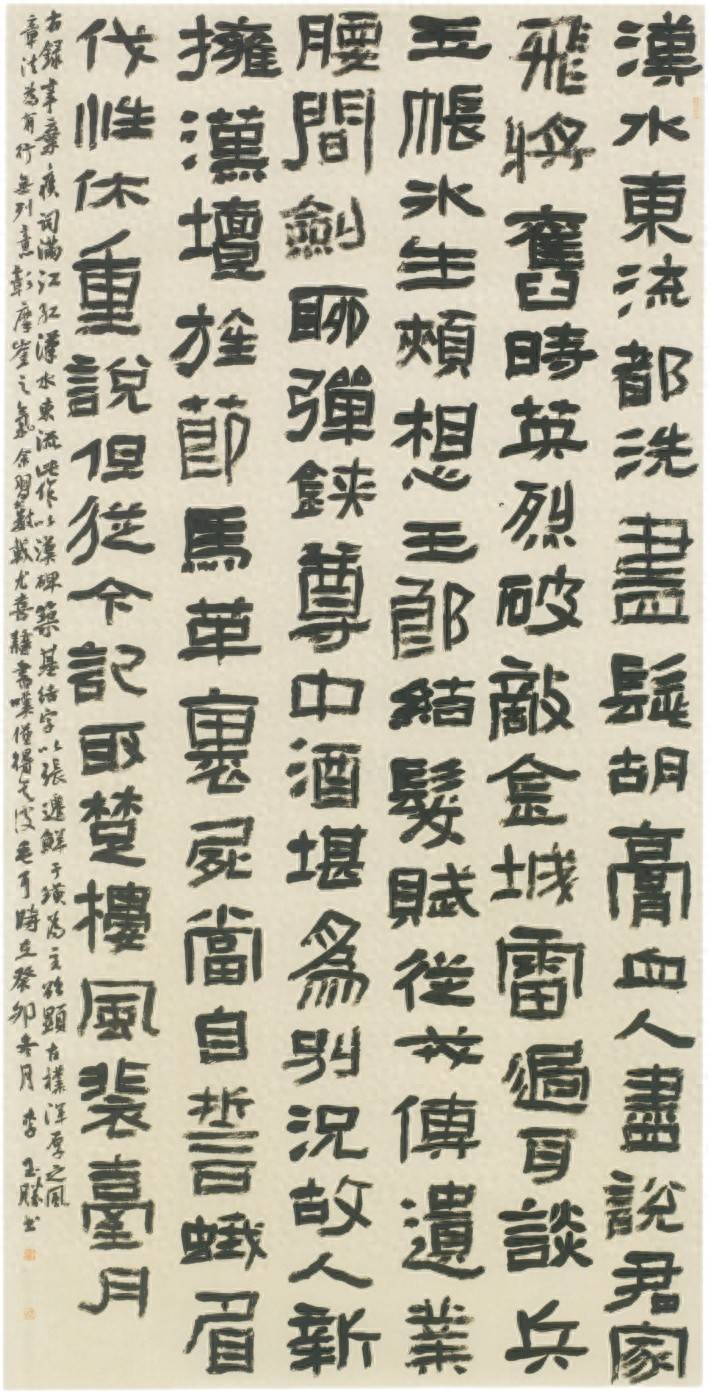 漢水東流都洗盡髭胡膏血人盡說君家
飛將舊時英烈破敵金城雷過耳談兵
玉帳冰生頰想王郎結髮賦從戎傳遺業
腰間劍聊彈鋏尊中酒堪為別況故人新
擁漢壇旌節馬革裹屍當自誓蛾眉
伐性休重說但從今記取楚樓風裴臺月
右錄辛棄疾詞滿江紅漢水東流此作以漢碑築基結字以張遷鮮于璜為主顯古樸渾厚之風
章法為有行無列意彰摩崖之氣余習數載尤喜隸書嘆僅得其皮毛耳時在癸卯冬月李玉勝書